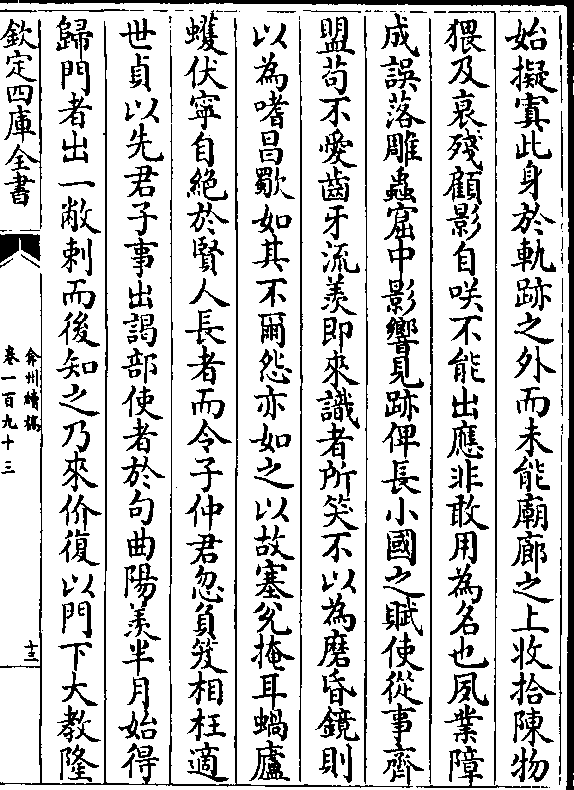 始擬寘此身於軌跡之外而未能廟廊之上收拾陳物
猥及衰殘顧影自咲不能出應非敢用為名也夙業障
成誤落雕蟲窟中影響見跡俾長小國之賦使從事齊
盟茍不愛齒牙流羡即來識者所笑不以為磨昏鏡則
以為嗜昌歜如其不爾怨亦如之以故塞兊掩耳蝸廬
蠖伏寧自絶於賢人長者而令子仲君忽負笈相枉適
世貞以先君子事出謁部使者於句曲陽羡半月始得
歸門者出一敝刺而後知之乃來价復以門下大教隆
欽定四庫全書
弇州續稿
卷一百九十三
十三